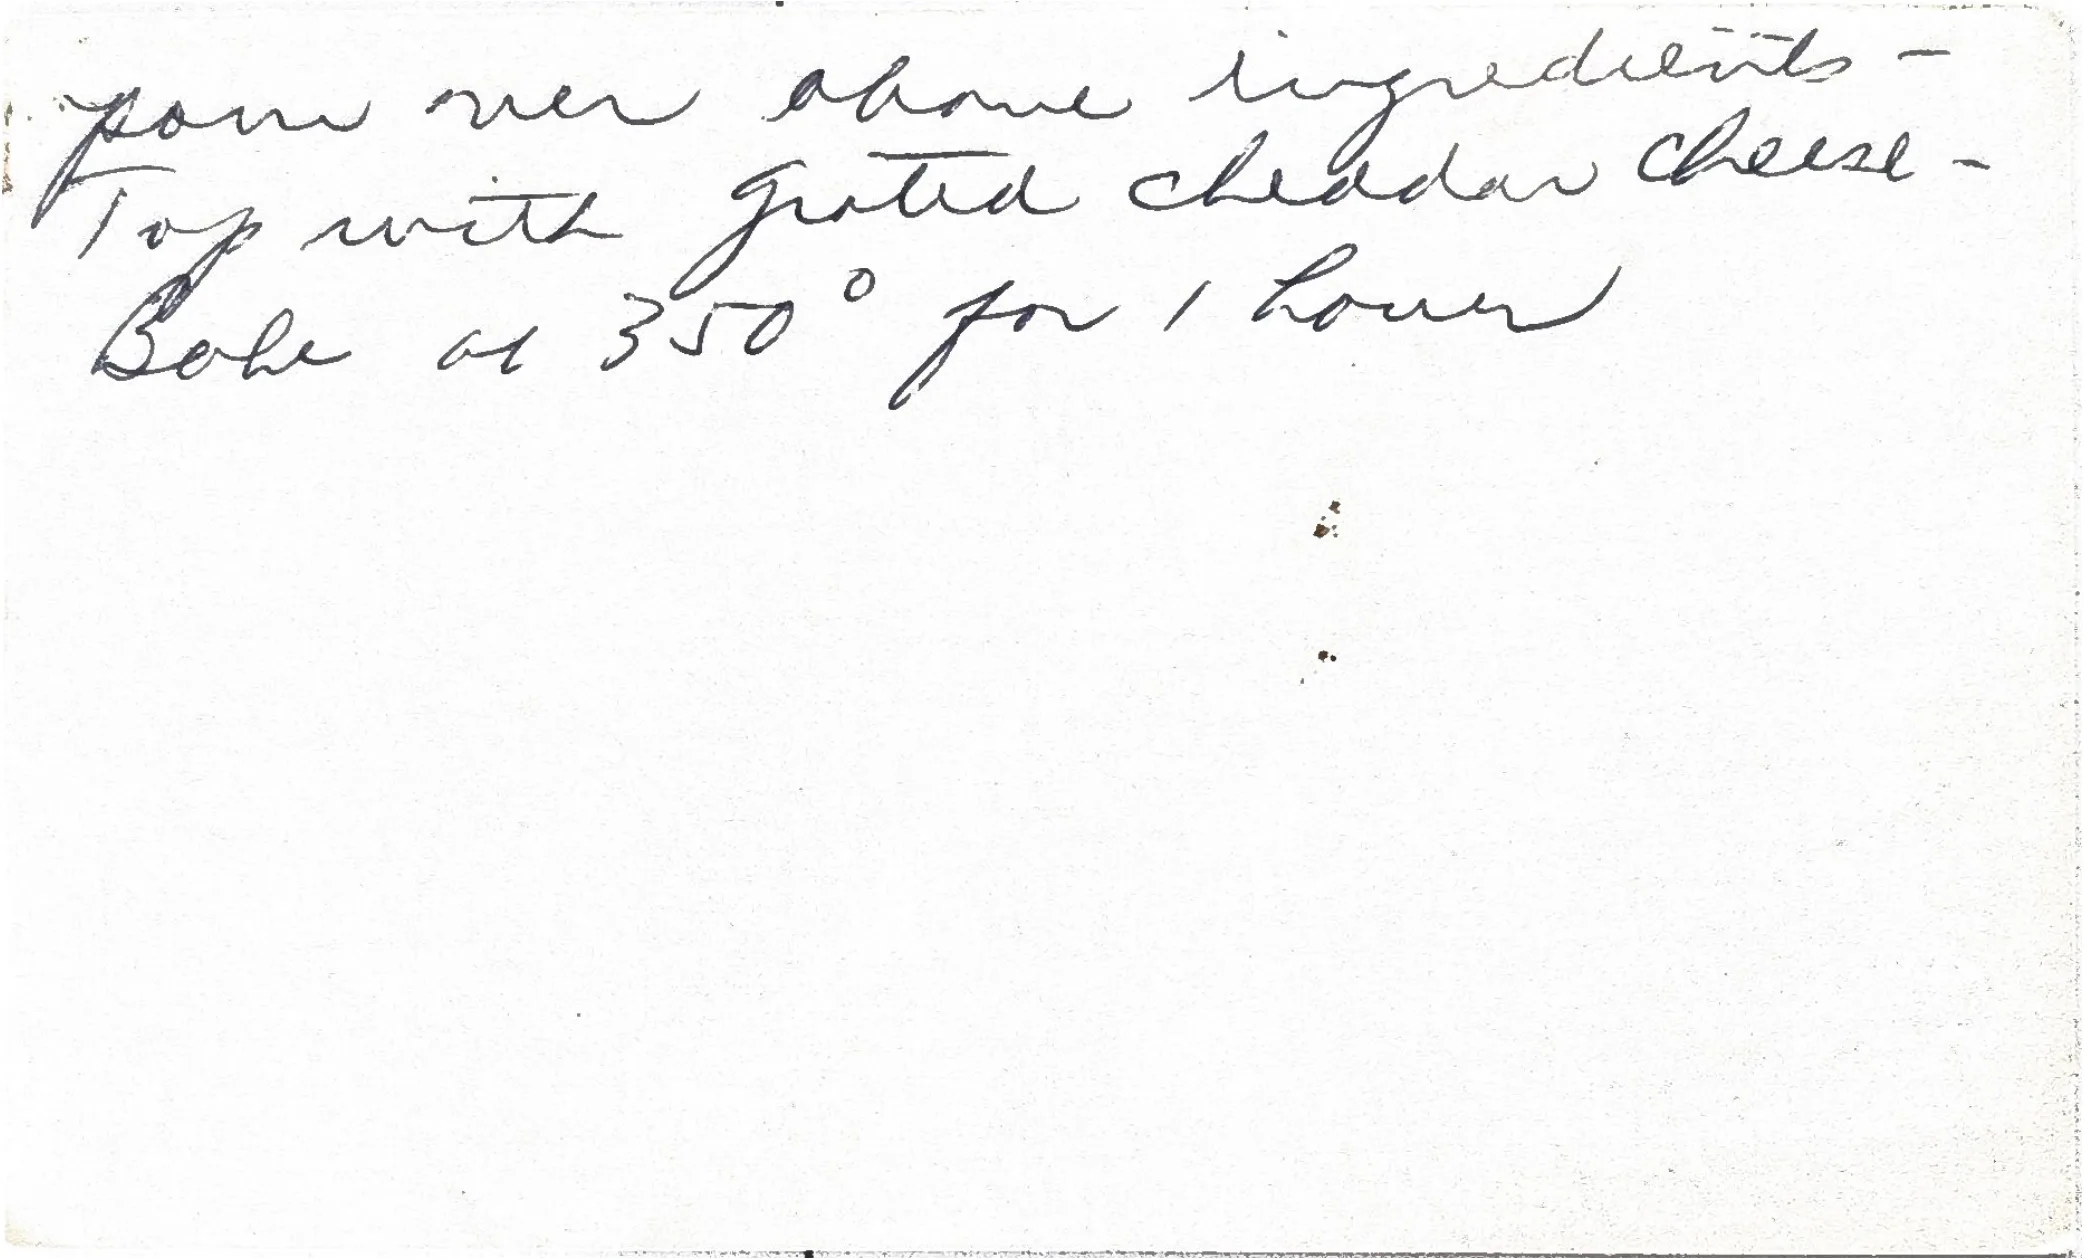 pour over above ingredients -
Top with grated cheddar cheese -
Bake at 350° for 1 hour